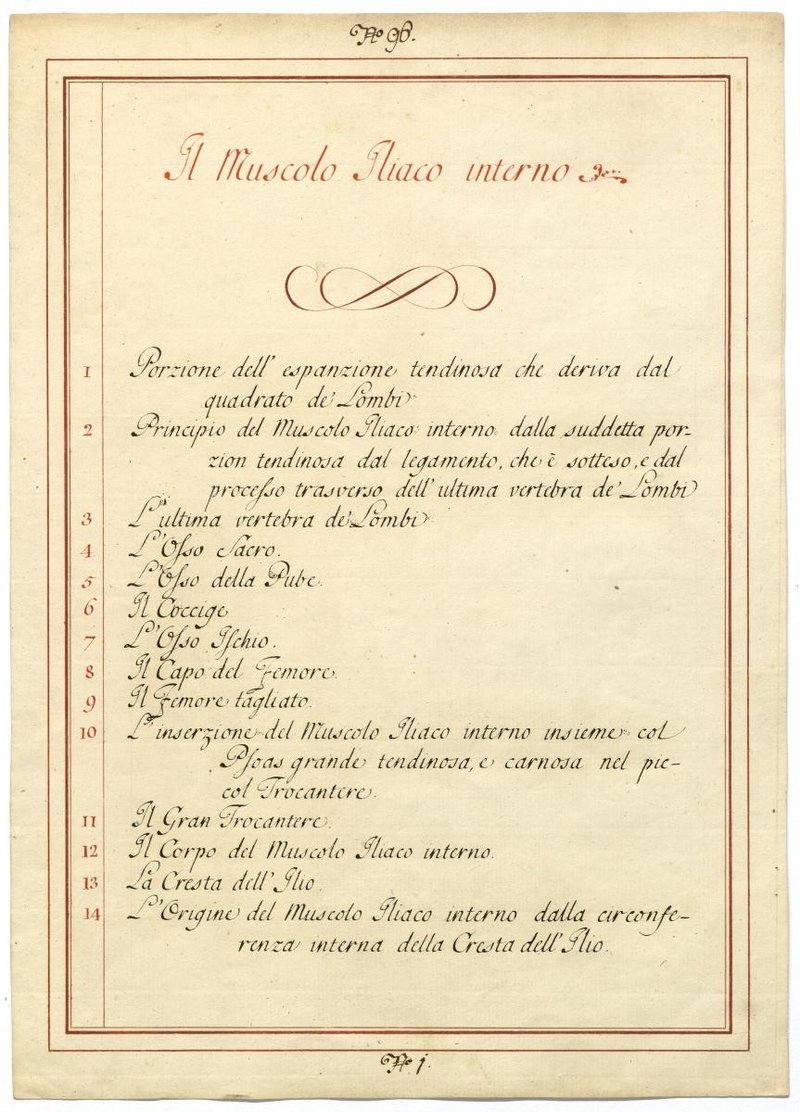 No 96.
Il Muscolo Iliaco interno
1 Porzione dell' espanzione tendinosa che deriva dal
quadrato de' Lombi
2 Principio del Muscolo Iliaco interno dalla suddetta por-
zion tendinosa dal legamento, che è sotteso, e dal
processo trasverso dell' ultima vertebra de' Lombi
3 L'ultima vertebra de' Lombi
4 L'Osso Sacro.
5 L'Osso della Pube.
6 Il Coccige
7 L'Osso Ischio.
8 Il Capo del Femore.
9 Il Femore tagliato.
10 L'inserzione del Muscolo Iliaco interno insieme col
Psoas grande tendinosa, e carnosa nel pic-
col Trocantere.
11 Il Gran Trocantere.
12 Il Corpo del Muscolo Iliaco interno.
13 La Cresta dell' Ilio.
14 L'Origine del Muscolo Iliaco interno dalla circonfe-
renza interna della Cresta dell' Ilio.
No 1.